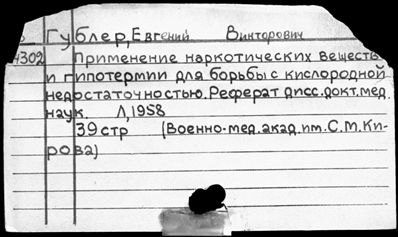 Гублер, Евгений Викторович
4302 Применение наркотических веществ
и гипотермии для борьбы с кислородной
недостаточностью. Реферат дисс. докт. мед.
наук. Л, 1958
39 стр (Военно-мед. акад. им. С.М. Ки-
рова)